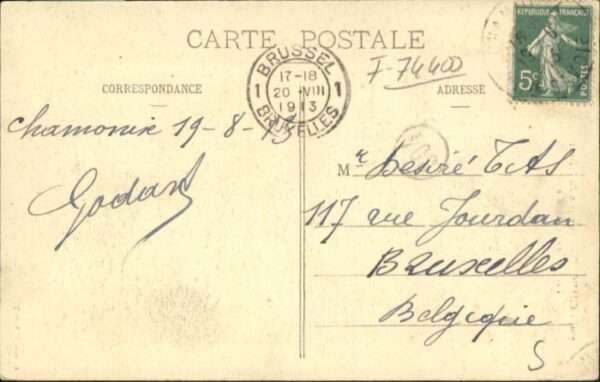 CARTE POSTALE
CORRESPONDANCE
ADRESSE
F-74400
RÉPUBLIQUE FRANÇAISE
5c
POSTES
BRUSSEL
17-18
1 20 VIII 1
1913
BRUXELLES
Chamonix 19-8-13
Godart
Mr Désiré TAS
117 rue Jourdan
Bruxelles
Belgique
S